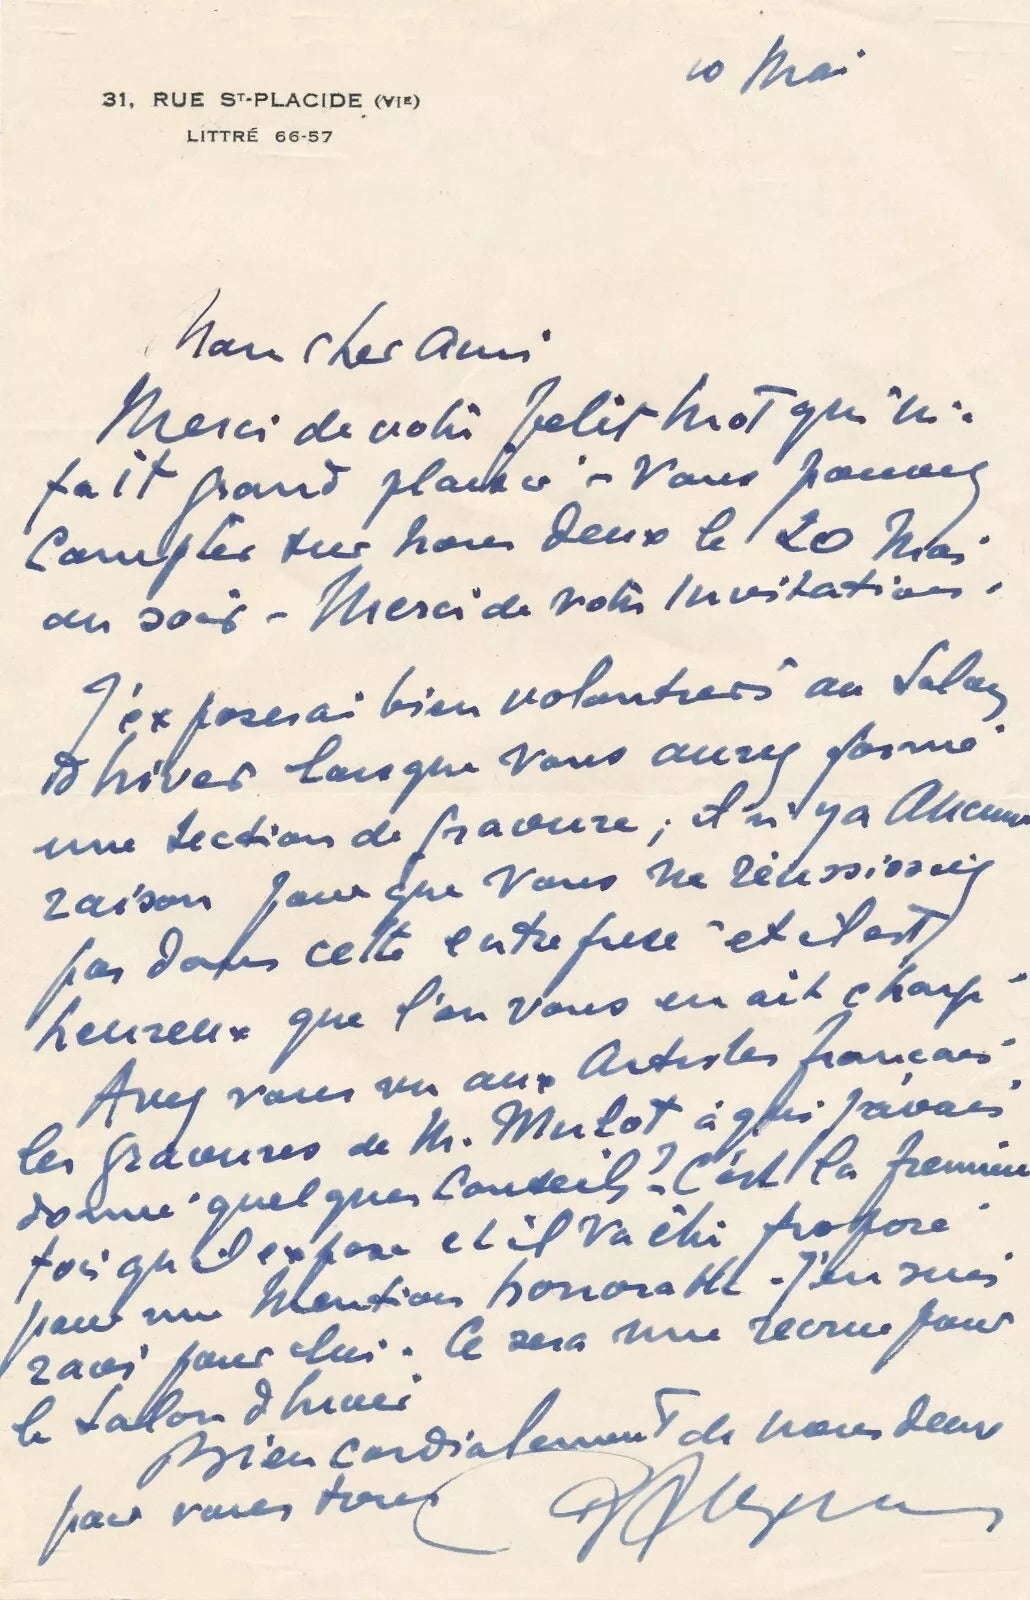 10 Mai
31, RUE ST-PLACIDE (VIE)
LITTRÉ 66-57
Mon cher Ami
Merci de votre petit mot qui m'a
fait grand plaisir - Vous pouvez
compter sur nous deux le 20 Mai
au soir - Merci de votre Invitation.
J'exposerai bien volontiers au Salon
d'hiver lorsque vous aurez formé
une section de gravure ; il n'y a Aucune
raison pour que vous ne réussissiez
pas dans cette entreprise et il est
heureux que l'on vous en ait chargé
Avez vous vu aux Artistes français
les gravures de M. Mulot à qui j'avais
donné quelques conseils ? C'est la première
fois qu'il expose et il va être proposé
pour une Mention honorable - J'en suis
ravi pour lui. Ce sera une recrue pour
le Salon d'hiver
Bien cordialement de nous deux
pour vous tous